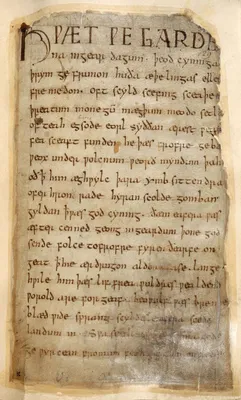 HǷÆT ǷE GARDE
na ingear dagum. þeod cyninga
þrym ge frunon huða æþelingas elle
fremedon. oft scyld scefing sceaþe
þreatum monegū mægþum meodo setl
of teah egsode eorl syððan ærest ƿear
fea sceaft funden he þæs frofre geba
ƿeox under ƿolcnum ƿeorð myndum þah
oð ꝥ him æghƿylc þara ymb sittendra
ofer hron rade hyran scolde gomban
gyldan ꝥ ƿæs god cyning. ðæm eafera ƿæs
æfter cenned geong ingeardum þone god
sende folce tofrofre fyren ðearfe on
geat ꝥ hie ær drugon aldor ase. lange
hƿile him þæs lif frea ƿuldres ƿealdend
ƿorold are for geaf. beoƿulf ƿæs breme
blæd ƿide sprang scyldes eafera scede
landum in. Sƿa sceal
ge ƿyrcean fromum